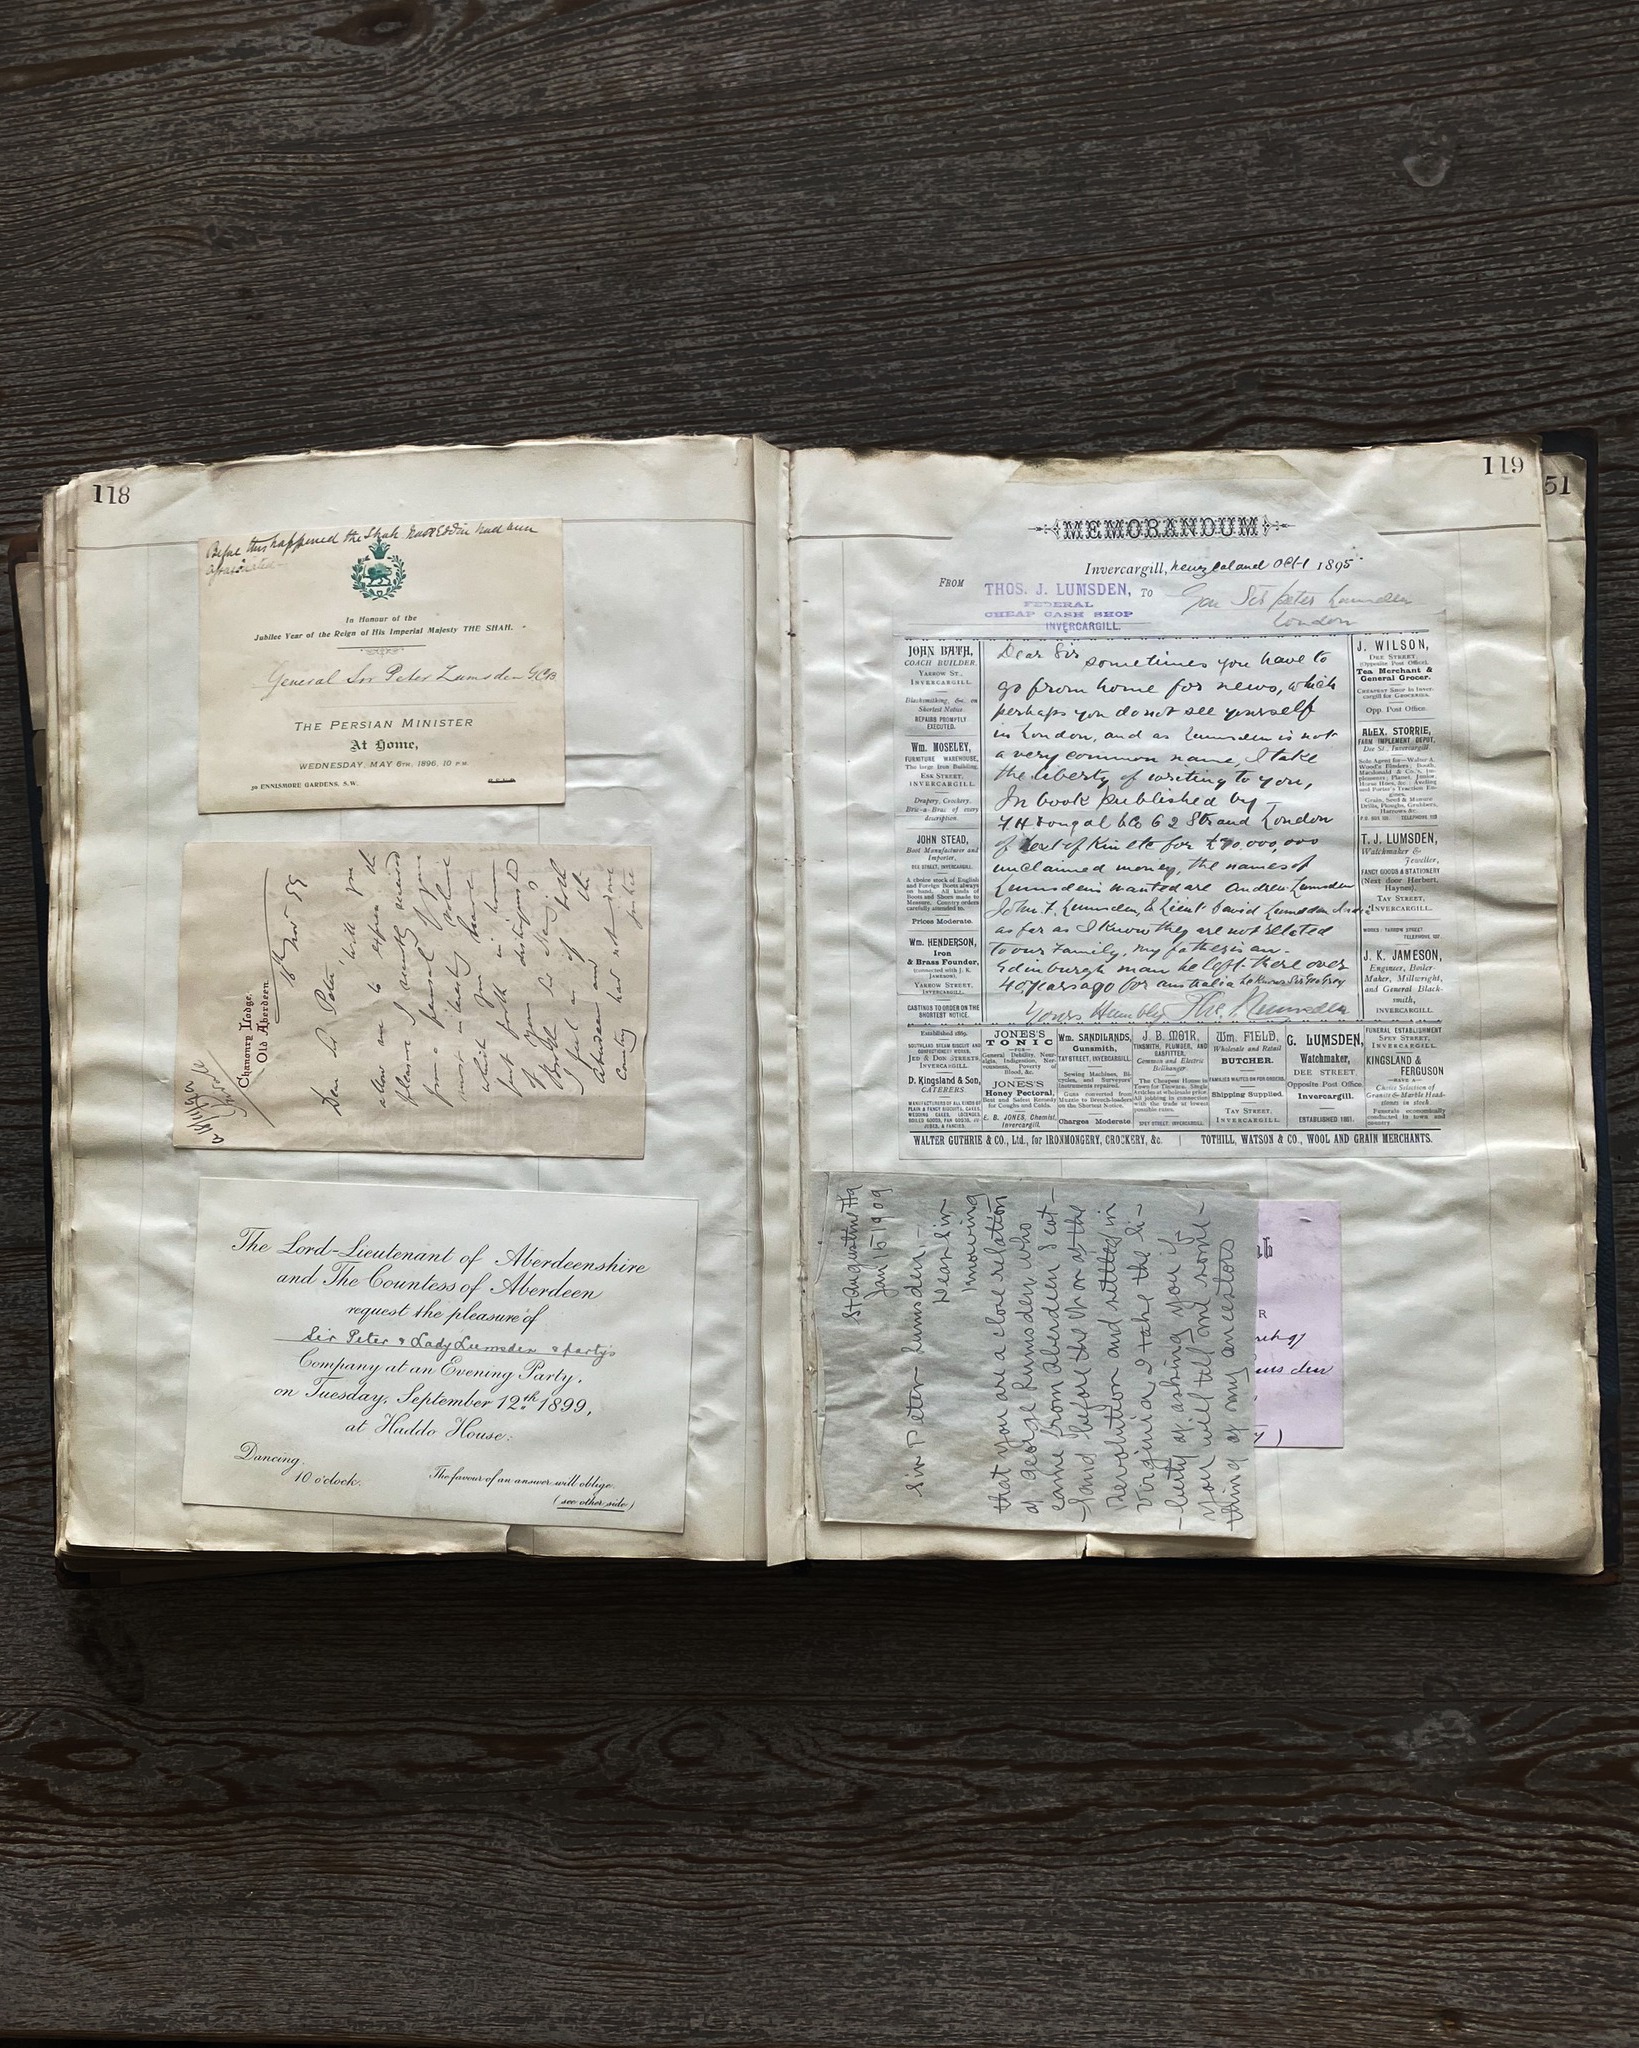 118
Before this happened the Shah had been
assassinated
In Honour of the
Jubilee Year of the Reign of His Imperial Majesty THE SHAH.
General Sir Peter Lumsden GCB
THE PERSIAN MINISTER
At Home,
WEDNESDAY, MAY 6TH, 1896, 10 P.M.
30 ENNISMORE GARDENS. S.W.
Chanonry Lodge,
Old Aberdeen.
Dear Sir Peter
Will you
allow me to express the
pleasure I recently received
from a perusal of your
most interesting volume
which you have
just put forth in honor
of your distinguished
Brother Sir Harry?
I feel as if both
Aberdeen and the
Country had not done
justice
The Lord-Lieutenant of Aberdeenshire
and The Countess of Aberdeen
request the pleasure of
Sir Peter & Lady Lumsden & party's
Company at an Evening Party,
on Tuesday, September 12th 1899,
at Haddo House.
Dancing.
10 o'clock.
The favour of an answer will oblige.
(see other side)
119
51
MEMORANDUM
Invercargill, New Zealand Oct 1 1895
FROM THOS. J. LUMSDEN, TO Gen Sir Peter Lumsden
FEDERAL
CHEAP CASH SHOP
INVERCARGILL.
London
Dear Sir
sometimes you have to
go from home for news, which
perhaps you do not see yourself
in London, and as Lumsden is not
a very common name, I take
the liberty of writing to you,
In book published by
F H Dougal & Co 62 Strand London
of Next of Kin etc for £70,000,000
unclaimed money, the names of
Lumsdens wanted are Andrew Lumsden
John F. Lumsden, & Lieut David Lumsden
as far as I know they are not related
to our family, my father is an
Edinburgh man he left there over
40 years ago for Australia
Yours Humbly Thos. J. Lumsden
JOHN BATH,
COACH BUILDER,
YARROW ST.,
INVERCARGILL.
Blacksmithing, &c. on
Shortest Notice.
REPAIRS PROMPTLY
EXECUTED.
Wm. MOSELEY,
FURNITURE WAREHOUSE,
The large Iron Building,
ESK STREET,
INVERCARGILL.
Drapery, Crockery,
Bric-a-Brac of every
description.
JOHN STEAD,
Boot Manufacturer and
Importer,
DEE STREET, INVERCARGILL.
A choice stock of English
and Foreign Boots always
on hand. All kinds of
Boots and Shoes made to
Measure. Country orders
carefully attended to.
Prices Moderate.
Wm. HENDERSON,
Iron
& Brass Founder,
(connected with J. K.
JAMESON),
YARROW STREET,
INVERCARGILL.
CASTINGS TO ORDER ON THE
SHORTEST NOTICE.
J. WILSON,
DEE STREET,
(Opposite Post Office),
Tea Merchant &
General Grocer.
CHEAPEST SHOP in Inver-
cargill for GROCERIES.
Opp. Post Office.
ALEX. STORRIE,
FARM IMPLEMENT DEPOT,
Dee St., Invercargill.
Sole Agent for—Walter A.
Wood's Binders; Booth,
Macdonald & Co.'s, Im-
plements; Planet, Junior,
Horse Hoes, &c; Aveling
and Porter's Traction En-
gines.
Grain, Seed & Manure
Drills, Ploughs, Grubbers,
Harrows &c.
T. J. LUMSDEN,
Watchmaker &
Jeweller,
FANCY GOODS & STATIONERY
(Next door Herbert,
Haynes).
TAY STREET,
INVERCARGILL.
WORKS: YARROW STREET.
J. K. JAMESON,
Engineer, Boiler-
Maker, Millwright,
and General Black-
smith,
INVERCARGILL.
Established 1869.
SOUTHLAND STEAM BISCUIT AND
CONFECTIONERY WORKS,
JED & DON STREETS,
INVERCARGILL.
D. Kingsland & Son,
CATERERS
MANUFACTURERS OF ALL KINDS OF
PLAIN & FANCY BISCUITS, CAKES,
WEDDING CAKES, LOZENGES,
BOILED GOODS, PAN GOODS, JU-
JUBES, & FANCIES.
JONES'S
TONIC
FOR
General Debility, Neur-
algia, Indigestion, Ner-
vousness, Poverty of
Blood, &c.
JONES'S
Honey Pectoral,
Best and Safest Remedy
for Coughs and Colds.
E. B. JONES, Chemist.
Invercargill.
Wm. SANDILANDS,
Gunsmith,
TAY STREET, INVERCARGILL.
Sewing Machines, Bi-
cycles, and Surveyors'
Instruments repaired.
Guns converted from
Muzzle to Breech-loaders
on the Shortest Notice.
Charges Moderate.
J. B. MOIR,
TINSMITH, PLUMBER, AND
GASFITTER,
Common and Electric
Bellhanger.
The Cheapest House in
Town for Tinware. Single
Articles at wholesale price.
All jobbing in connection
with the trade at lowest
possible rates.
SPEY STREET, INVERCARGILL.
Wm. FIELD,
Wholesale and Retail
BUTCHER.
FAMILIES WAITED ON FOR ORDERS.
Shipping Supplied.
TAY STREET,
INVERCARGILL.
G. LUMSDEN,
Watchmaker,
DEE STREET,
Opposite Post Office,
Invercargill.
ESTABLISHED 1861.
FUNERAL ESTABLISHMENT
SPEY STREET,
INVERCARGILL.
KINGSLAND &
FERGUSON
HAVE A
Choice Selection of
Granite & Marble Head-
stones in stock.
Funerals economically
conducted in town and
country
WALTER GUTHRIE & CO., Ltd., for IRONMONGERY, CROCKERY, &c. | TOTHILL, WATSON & CO., WOOL AND GRAIN MERCHANTS.
St Augustine Fla
Jan 15 1909
Sir Peter Lumsden:—
Dear Sir
Knowing
that you are a close relation
of George Lumsden who
came from Aberdeen Scot-
land before the War of the
Revolution and settled in
Virginia I take the li-
berty of asking you if
you will tell me some-
thing of my ancestors
R